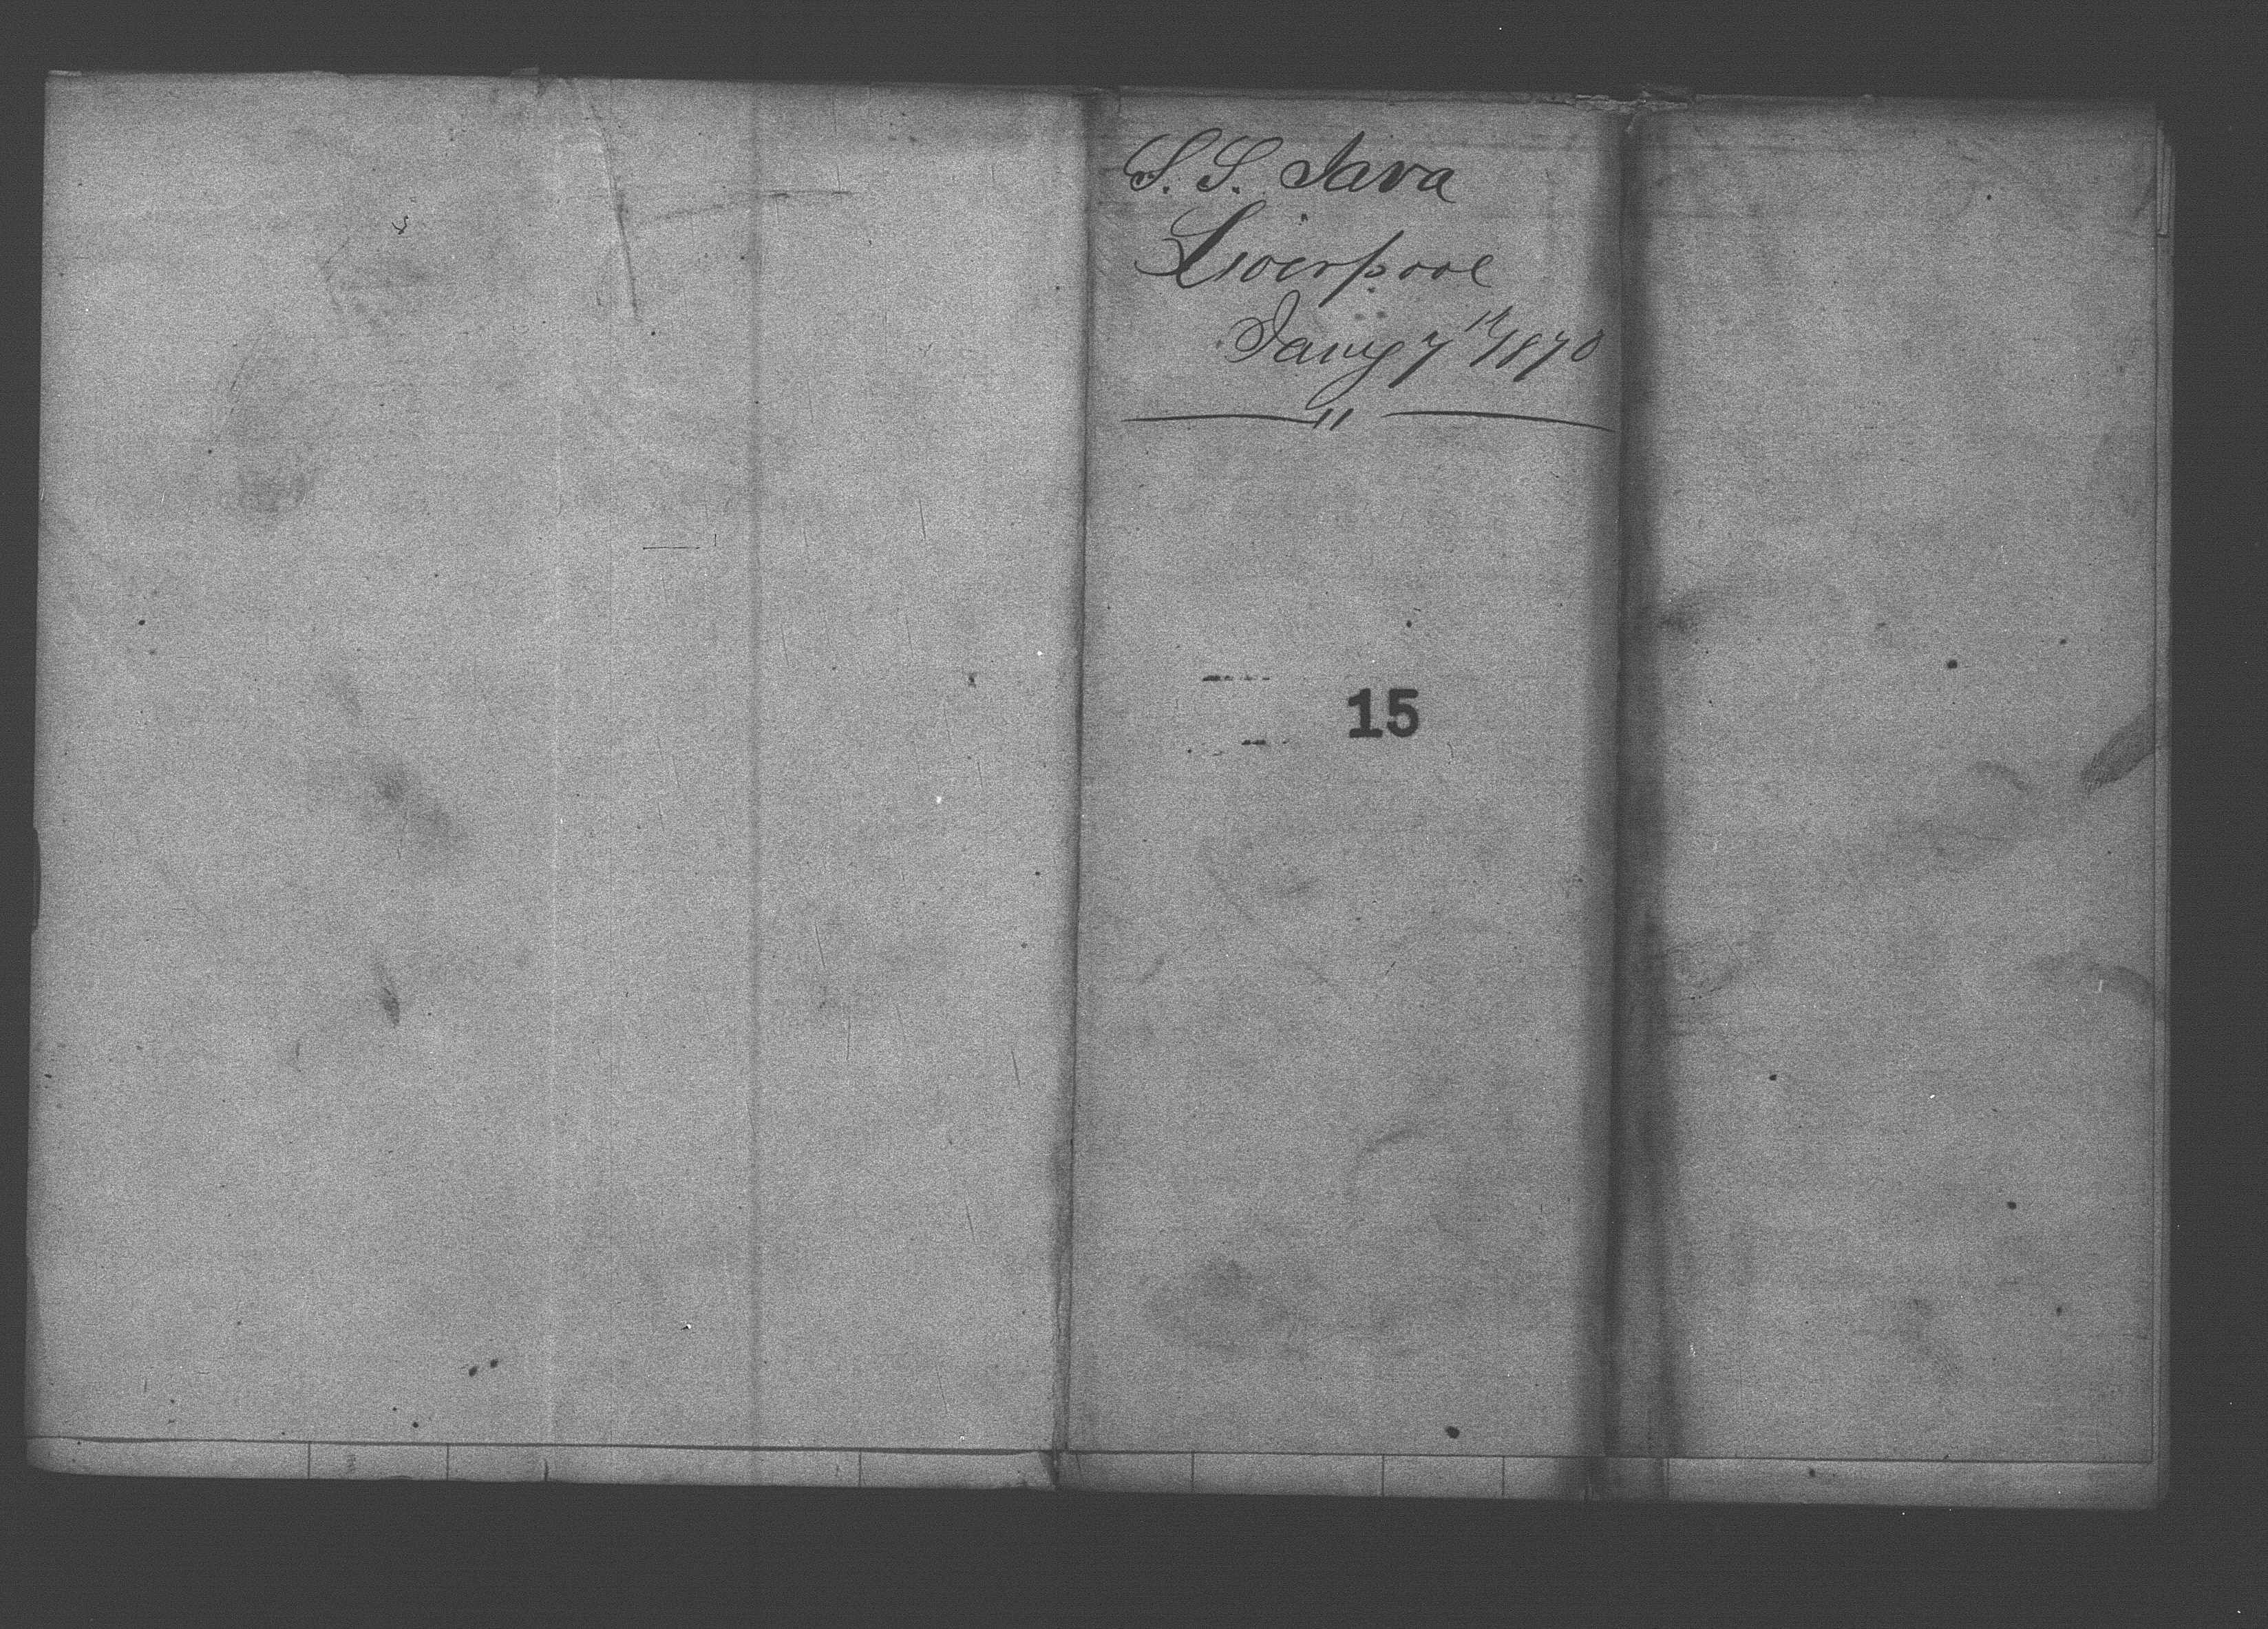 S. S. Java
Liverpool
Jany 7th/1870
15